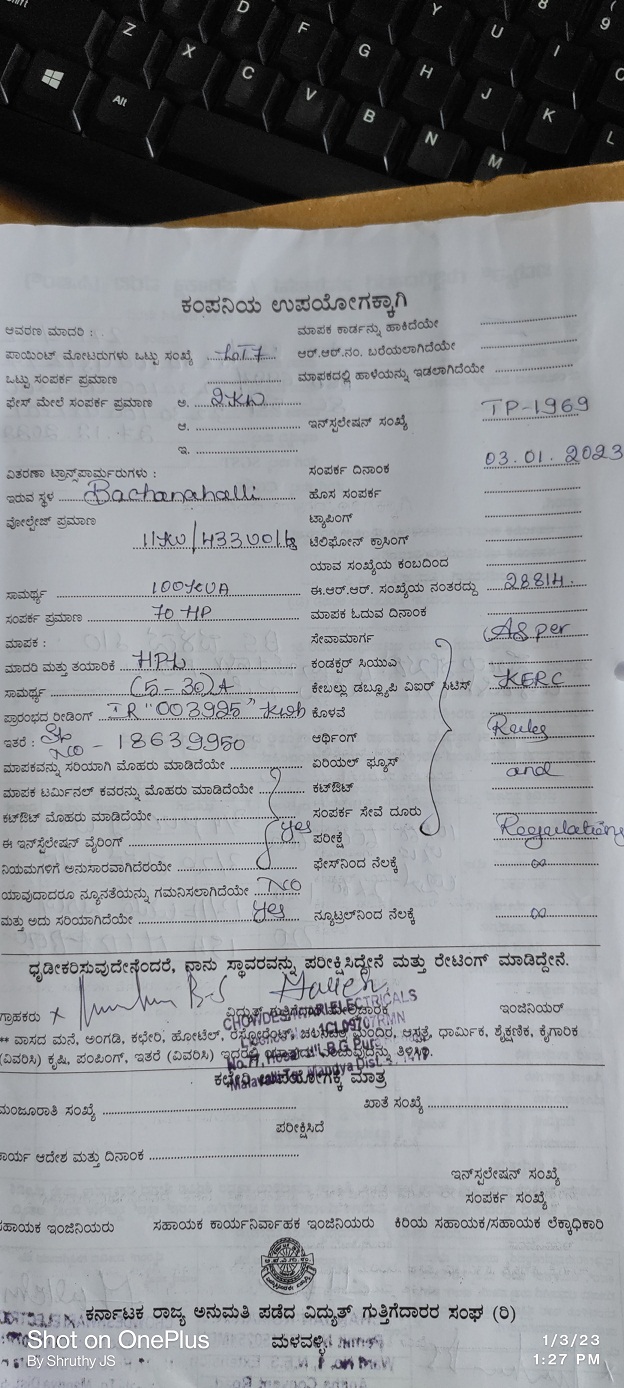 Z X C V B N M D F G H J K Y U I L 8 9
Alt
ಕಂಪನಿಯ ಉಪಯೋಗಕ್ಕಾಗಿ
ಆವರಣ ಮಾದರಿ : ಮಾಪಕ ಕಾರ್ಡನ್ನು ಹಾಕಿದೆಯೇ
ಪಾಯಿಂಟ್ ಮೋಟರುಗಳು ಒಟ್ಟು ಸಂಖ್ಯೆ ಆರ್.ಆರ್.ನಂ. ಬರೆಯಲಾಗಿದೆಯೇ
ಒಟ್ಟು ಸಂಪರ್ಕ ಪ್ರಮಾಣ ಮಾಪಕದಲ್ಲಿ ಹಾಳೆಯನ್ನು ಇಡಲಾಗಿದೆಯೇ
ಫೇಸ್ ಮೇಲೆ ಸಂಪರ್ಕ ಪ್ರಮಾಣ ಅ. 2KW
ಆ. ಇನ್‌ಸ್ಟಲೇಷನ್ ಸಂಖ್ಯೆ TP-1969
ಇ.
ವಿತರಣಾ ಟ್ರಾನ್ಸ್‌ಪಾರ್ಮರುಗಳು : ಸಂಪರ್ಕ ದಿನಾಂಕ 03.01.2023
ಇರುವ ಸ್ಥಳ Bachanahalli ಹೊಸ ಸಂಪರ್ಕ
ವೋಲ್ಟೇಜ್ ಪ್ರಮಾಣ ಟ್ಯಾಪಿಂಗ್
11KV/433Volts ಟೆಲಿಫೋನ್ ಕ್ರಾಸಿಂಗ್
ಯಾವ ಸಂಖ್ಯೆಯ ಕಂಬದಿಂದ
ಸಾಮರ್ಥ್ಯ 100KVA ಈ.ಆರ್.ಆರ್. ಸಂಖ್ಯೆಯ ನಂತರದ್ದು 28814
ಸಂಪರ್ಕ ಪ್ರಮಾಣ 70 HP ಮಾಪಕ ಓದುವ ದಿನಾಂಕ
ಮಾಪಕ : ಸೇವಾಮಾರ್ಗ As per
ಮಾದರಿ ಮತ್ತು ತಯಾರಿಕೆ HPL ಕಂಡಕ್ಟರ್ ಸಿಯುವಿ
ಸಾಮರ್ಥ್ಯ (5-30)A ಕೇಬಲ್ಲು ಡಬ್ಲ್ಯೂಪಿ ವಿಐರ್ ಸಿಟಿಸ್ KERC
ಪ್ರಾರಂಭದ ರೀಡಿಂಗ್ IR "003925" Kwh ಕೊಳವೆ
ಇತರೆ : Sl No - 18639950 ಆರ್ಥಿಂಗ್ Rules
ಮಾಪಕವನ್ನು ಸರಿಯಾಗಿ ಮೊಹರು ಮಾಡಿದೆಯೇ ಏರಿಯಲ್ ಫ್ಯೂಸ್
ಮಾಪಕ ಟರ್ಮಿನಲ್ ಕವರನ್ನು ಮೊಹರು ಮಾಡಿದೆಯೇ ಕಟ್‌ಔಟ್ and
ಕಟ್‌ಔಟ್ ಮೊಹರು ಮಾಡಿದೆಯೇ ಸಂಪರ್ಕ ಸೇವೆ ದೂರು
ಈ ಇನ್‌ಸ್ಟಲೇಷನ್ ವೈರಿಂಗ್ yes ಪರೀಕ್ಷೆ Regulations
ನಿಯಮಗಳಿಗೆ ಅನುಸಾರವಾಗಿದೆರಯೇ ಫೇಸ್‌ನಿಂದ ನೆಲಕ್ಕೆ ∞
ಯಾವುದಾದರೂ ನ್ಯೂನತೆಯನ್ನು ಗಮನಿಸಲಾಗಿದೆಯೇ NO
ಮತ್ತು ಅದು ಸರಿಯಾಗಿದೆಯೇ Yes ನ್ಯೂಟ್ರಲ್‌ನಿಂದ ನೆಲಕ್ಕೆ ∞
ಧೃಡೀಕರಿಸುವುದೇನೆಂದರೆ, ನಾನು ಸ್ಥಾವರವನ್ನು ಪರೀಕ್ಷಿಸಿದ್ದೇನೆ ಮತ್ತು ರೇಟಿಂಗ್ ಮಾಡಿದ್ದೇನೆ.
ಗ್ರಾಹಕರು ಇಂಜಿನಿಯರ್
** ವಾಸದ ಮನೆ, ಅಂಗಡಿ, ಕಛೇರಿ, ಹೋಟೆಲ್, ಆಸ್ಪತ್ರೆ, ಧಾರ್ಮಿಕ, ಶೈಕ್ಷಣಿಕ, ಕೈಗಾರಿಕ
(ವಿವರಿಸಿ) ಕೃಷಿ, ಪಂಪಿಂಗ್, ಇತರೆ (ವಿವರಿಸಿ) ತಿಳಿಸಿ.
ಮಂಜೂರಾತಿ ಸಂಖ್ಯೆ ಖಾತೆ ಸಂಖ್ಯೆ
ಪರೀಕ್ಷಿಸಿದೆ
ಕಾರ್ಯ ಆದೇಶ ಮತ್ತು ದಿನಾಂಕ
ಇನ್‌ಸ್ಟಲೇಷನ್ ಸಂಖ್ಯೆ
ಸಂಪರ್ಕ ಸಂಖ್ಯೆ
ಸಹಾಯಕ ಇಂಜಿನಿಯರು ಸಹಾಯಕ ಕಾರ್ಯನಿರ್ವಾಹಕ ಇಂಜಿನಿಯರು ಕಿರಿಯ ಸಹಾಯಕ/ಸಹಾಯಕ ಲೆಕ್ಕಾಧಿಕಾರಿ
ಕರ್ನಾಟಕ ರಾಜ್ಯ ಅನುಮತಿ ಪಡೆದ ವಿದ್ಯುತ್ ಗುತ್ತಿಗೆದಾರರ ಸಂಘ (ರಿ)
ಮಳವಳ್ಳಿ
Shot on OnePlus
By Shruthy JS
1/3/23
1:27 PM